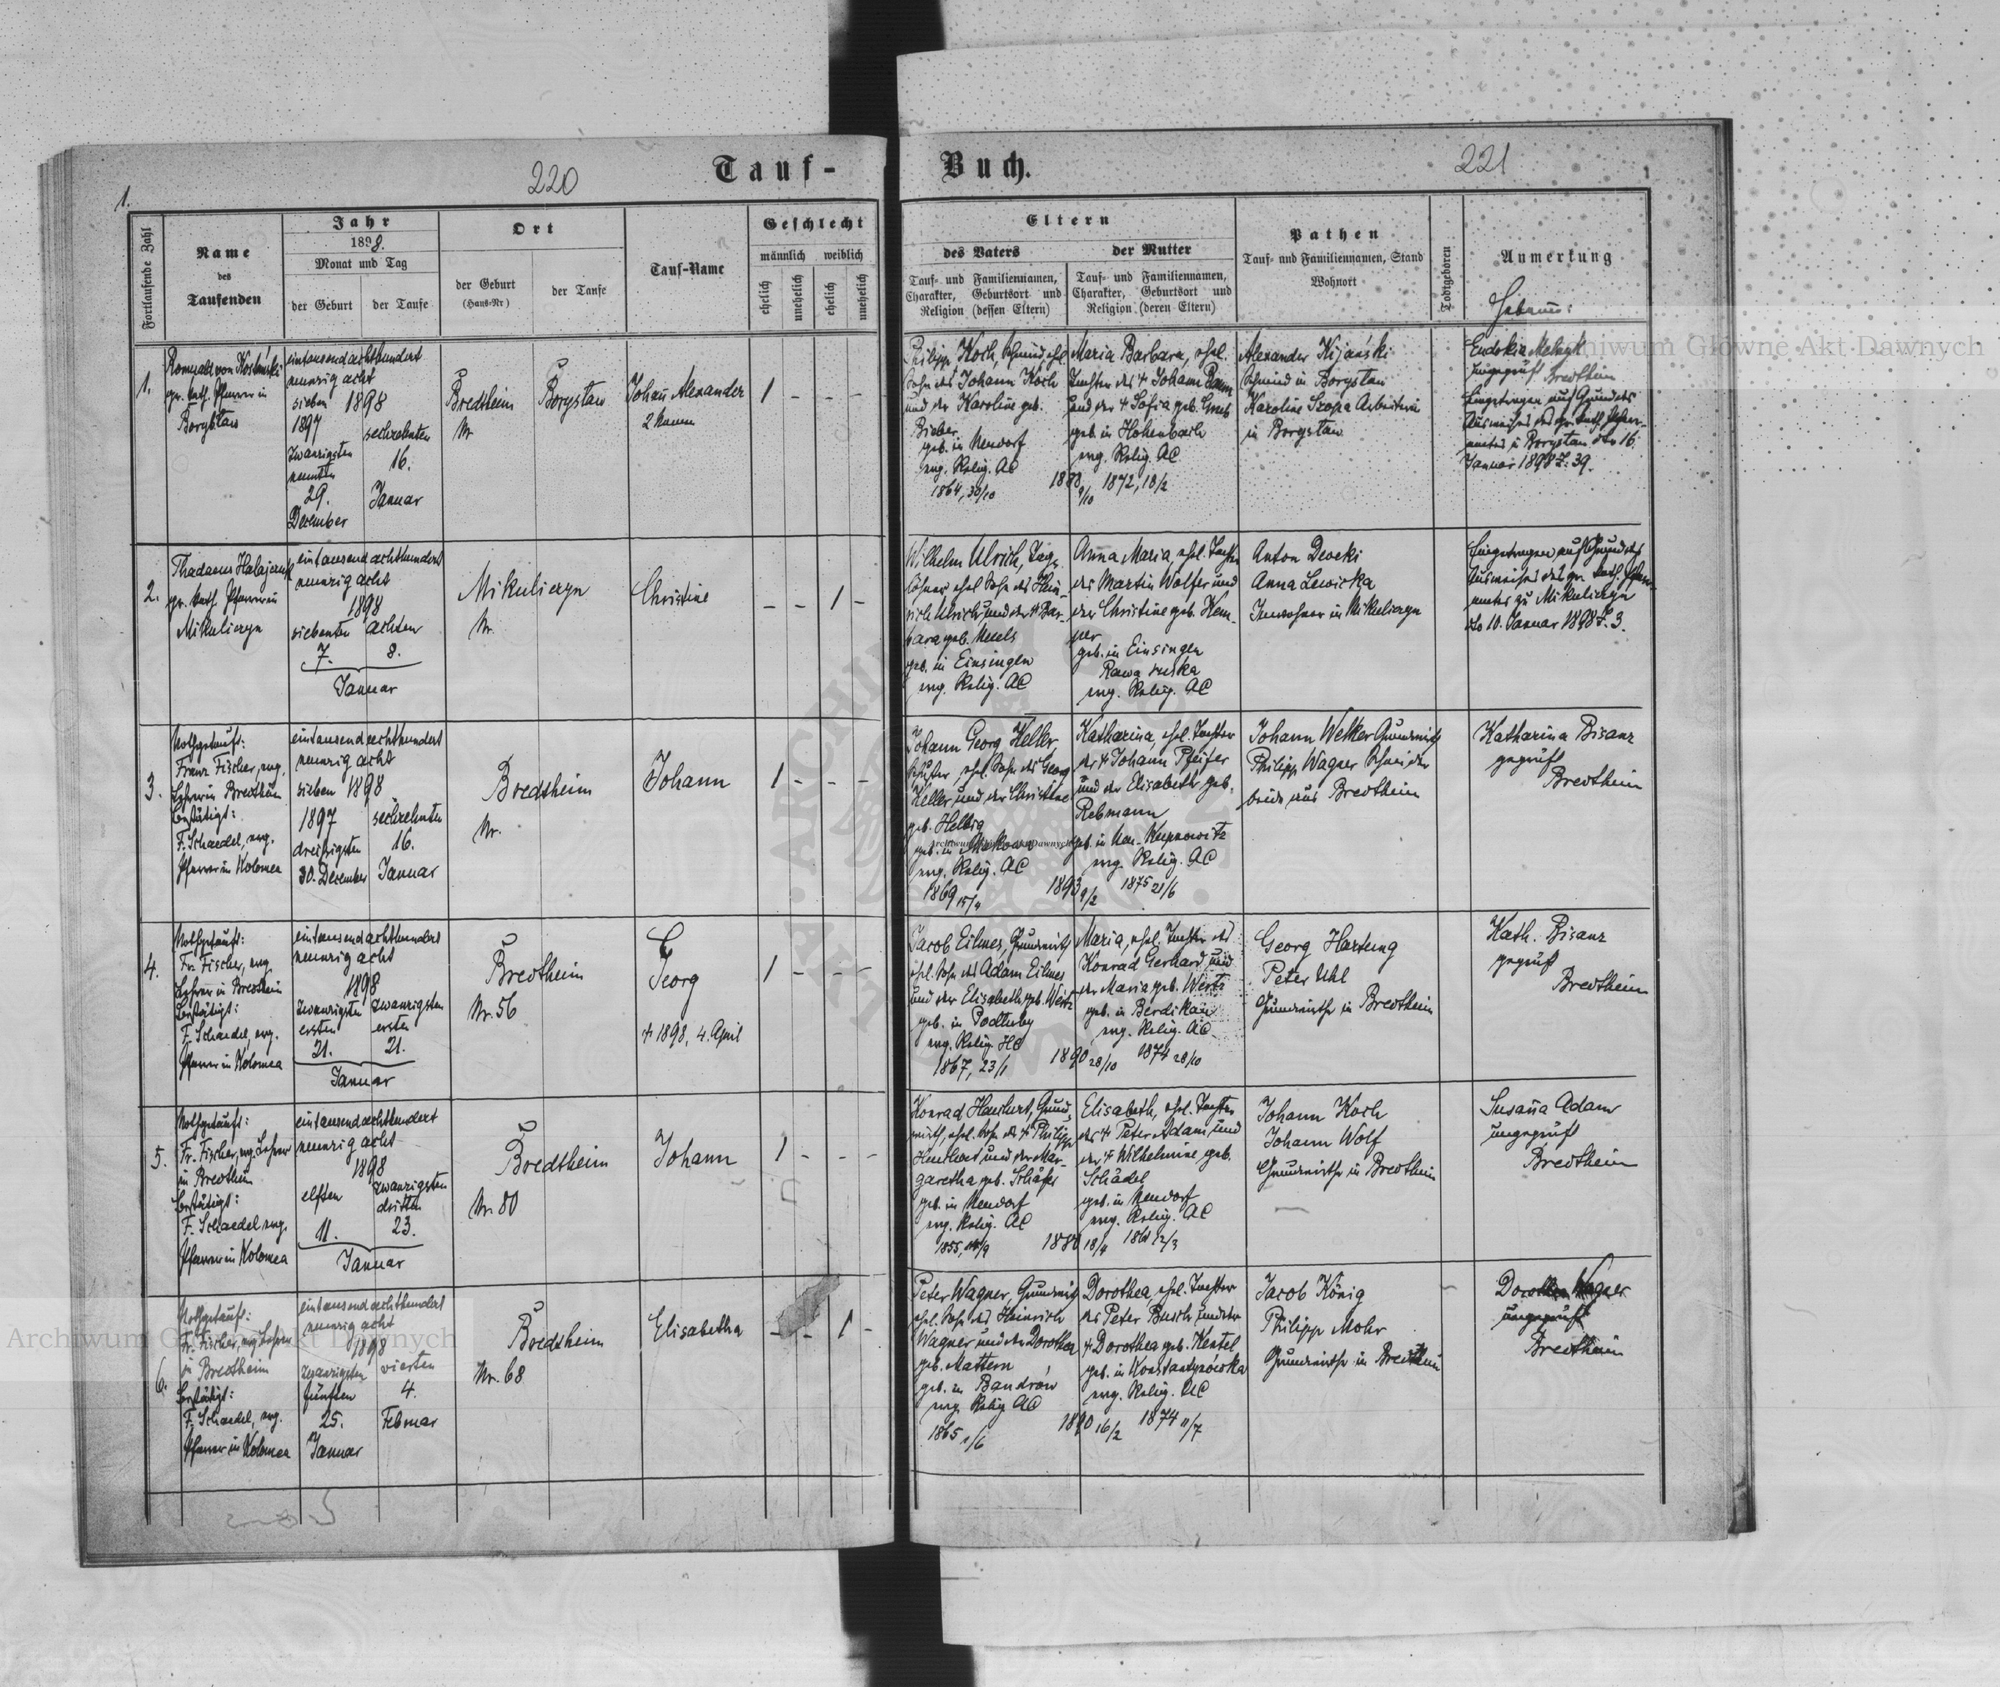 220
Tauf-
Buch.
221
1.
1
Fortlaufende Zahl
Name
des
Taufenden
Jahr
1898.
Monat und Tag
der Geburt
der Taufe
Ort
der Geburt
(Haus-Nr)
der Taufe
Tauf-Name
Geschlecht
männlich
weiblich
ehelich
unehelich
ehelich
unehelich
Eltern
des Vaters
Tauf- und Familiennamen,
Charakter, Geburtsort und
Religion (dessen Eltern)
der Mutter
Tauf- und Familiennamen,
Charakter, Geburtsort und
Religion (deren Eltern)
Pathen
Tauf- und Familiennamen, Stand
Wohnort
Todtgeboren
Anmerkung
1.
gr. kath. Pfarrer in
Boryslau
eintausendachthundert
neunzig acht
sieben 1898
1897
sechzehnten
zwanzigsten
neunten
16.
29.
Januar
December
Bredtheim
Nr.
Boryslau
Johann Alexander
2 Namen
1 - - -
Philipp Koch, Schmied, ehel.
Sohn des Johann Koch
und der Karoline geb.
Bieber
geb. in Neudorf
evg. Relig. AC
1864, 30/10
Maria Barbara, ehel.
Tochter des † Johann
und der † Sofia geb.
geb. in Hohenbach
evg. Relig. AC
1872, 18/2
Alexander Kijański
Schmied in Boryslau
Karoline Szopa Arbeiterin
in Boryslau
Eudokia
ungeprüft Bredtheim
Eingetragen auf Grund des
Ausweises des gr. kath. Pfarr-
amtes in Boryslau dto 16.
Januar 1898 Z. 39.
2.
gr. kath. Pfarrer in
Mikuliczyn
eintausendachthundert
neunzig acht
1898
siebenten
achten
7.
8.
Januar
Mikuliczyn
Nr.
Christine
- - 1 -
Wilhelm Ulrich, Tag-
löhner ehel. Sohn des Hein-
rich Ulrich und der † Bar-
bara geb.
geb. in Einsingen
evg. Relig. AC
Anna Maria, ehel. Tochter
des Martin Wolfer und
der Christine geb. Kem-
per
geb. in Einsingen
Rawa ruska
evg. Relig. AC
Anton
Anna Lewicka
Inwohner in Mikuliczyn
Eingetragen auf Grund des
Ausweises des gr. kath. Pfarr-
amtes zu Mikuliczyn
dto 10. Januar 1898 Z. 3.
3.
Nothgetauft:
Franz Fischer, evg.
Lehrer in Bredtheim
bestätigt:
F. Schaedel, evg.
Pfarrer in Kolomea
eintausendachthundert
neunzig acht
sieben 1898
1897
sechzehnten
dreissigsten
16.
30. December
Januar
Bredtheim
Nr.
Johann
1 - - -
Johann Georg Keller
Schuster, ehel. Sohn des Georg
Keller und der Christine
geb. Helbig
geb. in
evg. Relig. AC
1869 15/9
1893 9/2
Katharina, ehel. Tochter
des † Johann Pfeifer
und der Elisabeth geb.
Rebmann
geb. in Neu-Kupnowitz
evg. Relig. AC
1875 21/6
Johann Welker Grundwirth
Philipp Wagner Schneider
beide aus Bredtheim
Katharina Bisanz
geprüft
Bredtheim
4.
Nothgetauft:
Fr. Fischer, evg.
Lehrer in Bredtheim
bestätigt:
F. Schaedel, evg.
Pfarrer in Kolomea
eintausendachthundert
neunzig acht
1898
zwanzigsten
zwanzigsten
ersten
ersten
21.
21.
Januar
Bredtheim
Nr. 56
Georg
† 1898, 4. April
1 - - -
Jacob Eilmes, Grundwirth
ehel. Sohn des Adam Eilmes
und der Elisabeth geb. Wertz
geb. in Podluby
evg. Relig. HC
1867, 23/1
1890 28/10
Maria, ehel. Tochter des
Konrad Gerhard und
der Maria geb. Wertz
geb. in Berdikau
evg. Relig. AC
1874 28/10
Georg Hartung
Peter Uhl
Grundwirthe in Bredtheim
Kath. Bisanz
geprüft
Bredtheim
5.
Nothgetauft:
Fr. Fischer, evg. Lehrer
in Bredtheim
bestätigt:
F. Schaedel evg.
Pfarrer in Kolomea
eintausendachthundert
neunzig acht
1898
elften
zwanzigsten
dritten
11.
23.
Januar
Bredtheim
Nr. 80
Johann
1 - - -
Konrad, Grund-
wirth, ehel. Sohn des † Philipp
und der Mar-
garetha geb. Schäfer
geb. in Neudorf
evg. Relig. AC
Elisabeth, ehel. Tochter
des † Peter Adam und
der † Wilhelmine geb.
Schädel
geb. in Neudorf
evg. Relig. AC
Johann Koch
Johann Wolf
Grundwirthe in Bredtheim
Susanna Adam
ungeprüft
Bredtheim
6.
Nothgetauft:
Fr. Fischer, evg. Lehrer
in Bredtheim
bestätigt:
F. Schaedel, evg.
Pfarrer in Kolomea
eintausendachthundert
neunzig acht
1898
zwanzigsten
vierten
fünften
4.
25.
Februar
Januar
Bredtheim
Nr. 68
Elisabetha
- - 1 -
Peter Wagner, Grundwirth
ehel. Sohn des Heinrich
Wagner und der Dorothea
geb. Mattern
geb. in Bandrów
evg. Relig. AC
1865 1/6
1890 16/2
Dorothea, ehel. Tochter
des Peter Busch und der
† Dorothea geb. Kentel
geb. in Konstantynówka
evg. Relig. AC
1874 11/7
Jacob König
Philipp Mohr
Grundwirthe in Bredtheim
Dorothea Wagner
ungeprüft
Bredtheim
Archiwum Główne Akt Dawnych
Archiwum Główne Akt Dawnych